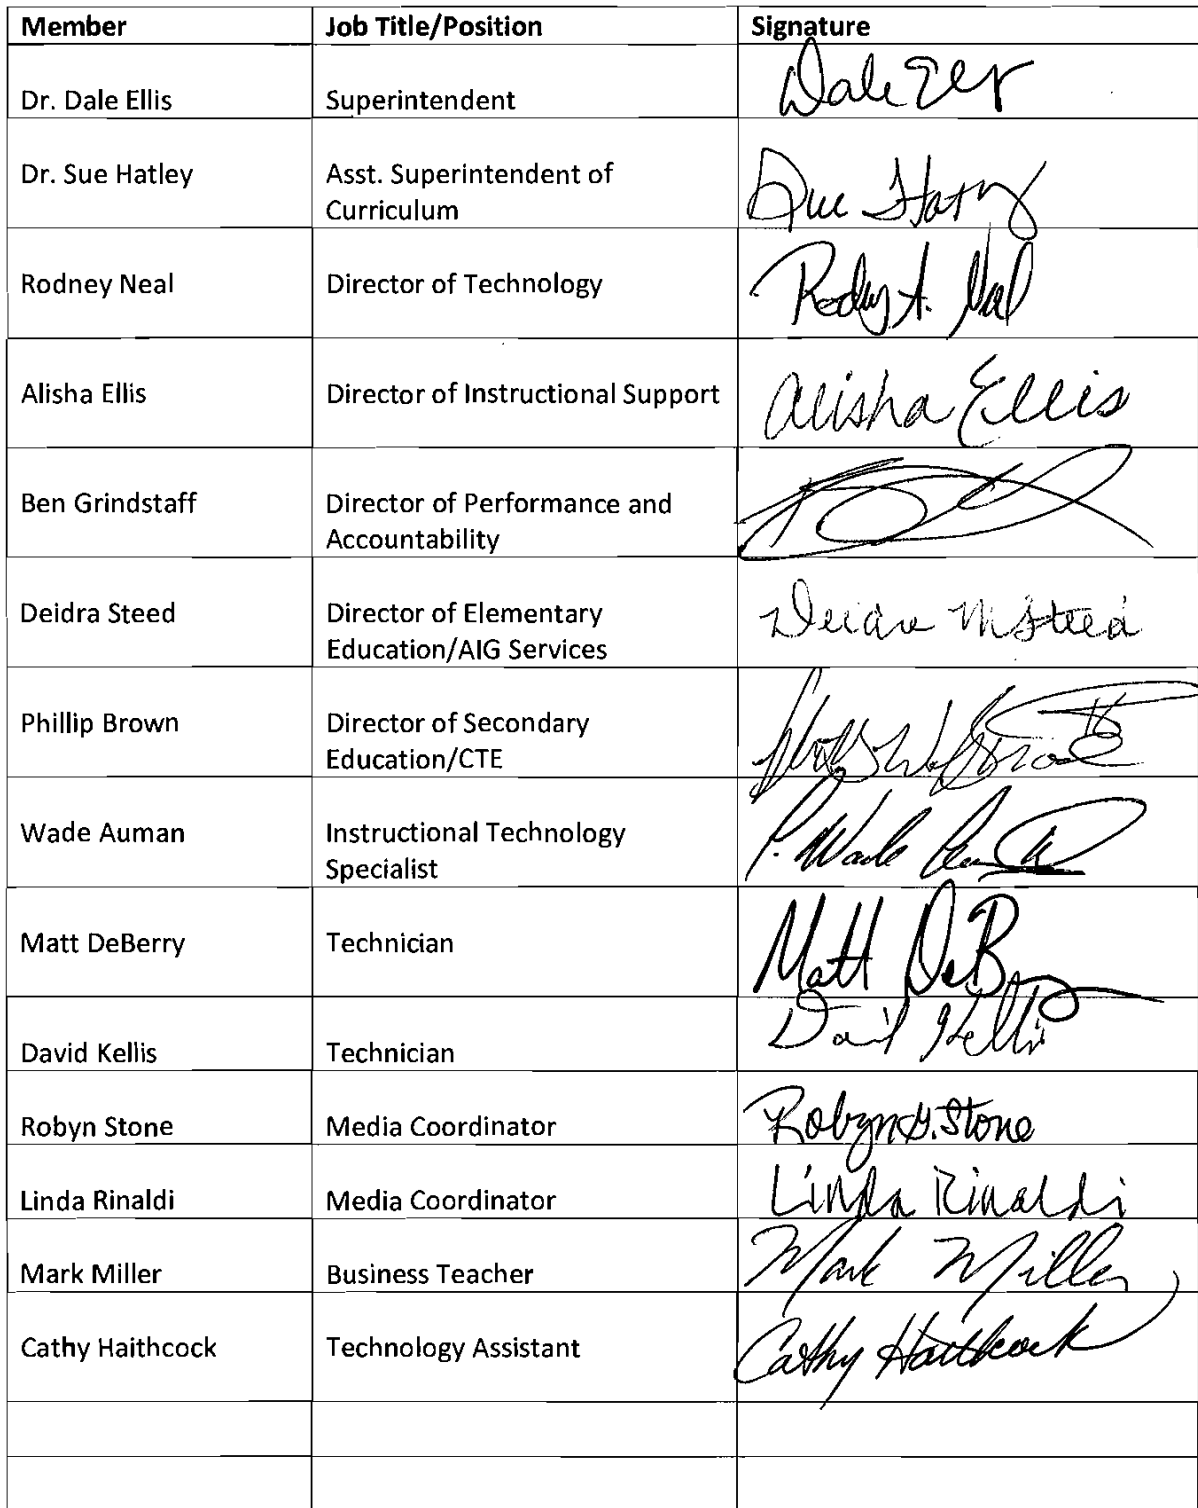 Member Job Title/Position Signature
Dr. Dale Ellis Superintendent Dale Ellis
Dr. Sue Hatley Asst. Superintendent of Sue Hatley
Curriculum
Rodney Neal Director of Technology Rodney A. Neal
Alisha Ellis Director of Instructional Support Alisha Ellis
Ben Grindstaff Director of Performance and
Accountability
Deidra Steed Director of Elementary Deidra M Steed
Education/AIG Services
Phillip Brown Director of Secondary
Education/CTE
Wade Auman Instructional Technology P. Wade
Specialist
Matt DeBerry Technician Matt DeB
David Kellis Technician David Kellis
Robyn Stone Media Coordinator Robyn G. Stone
Linda Rinaldi Media Coordinator Linda Rinaldi
Mark Miller Business Teacher Mark Miller
Cathy Haithcock Technology Assistant Cathy Haithcock